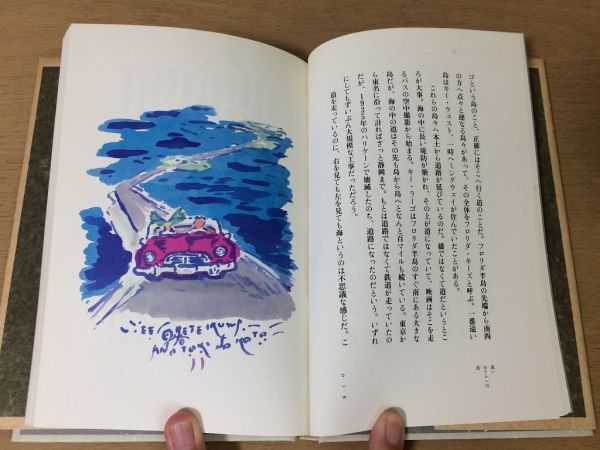 ゴという島のこと、正確にはそこへ行く道のことだ。フロリダ半島の先端から南西
の方へ点々と連なる島々があって、その全体をフロリダ・キーズと呼ぶ。一番遠い
島はキー・ウェスト、一時ヘミングウェイが住んでいたことがある。
これらの島々へ本土から道路が延びているのだ。橋ではなくて道だというとこ
ろが大事。海の中に長い堤防が築かれ、その上が道になっていて、映画はそこを走
るバスの空中撮影から始まる。キー・ラーゴはフロリダ半島のすぐ南にある大きな
島だが、海の中の道はその先も島から島へとなんと百マイルも続いている。東京か
ら東名に沿って計ればざっと静岡まで。もとは道路ではなくて鉄道が走っていたの
だが、1935年のハリケーンで壊滅したのち、道路になったのだという。いずれ
にしてもずいぶん大規模な工事だっただろう。
道を走っているのに、右を見ても左を見ても海というのは不思議な感じだ。こ
遠い
ホテルへの
旅
016